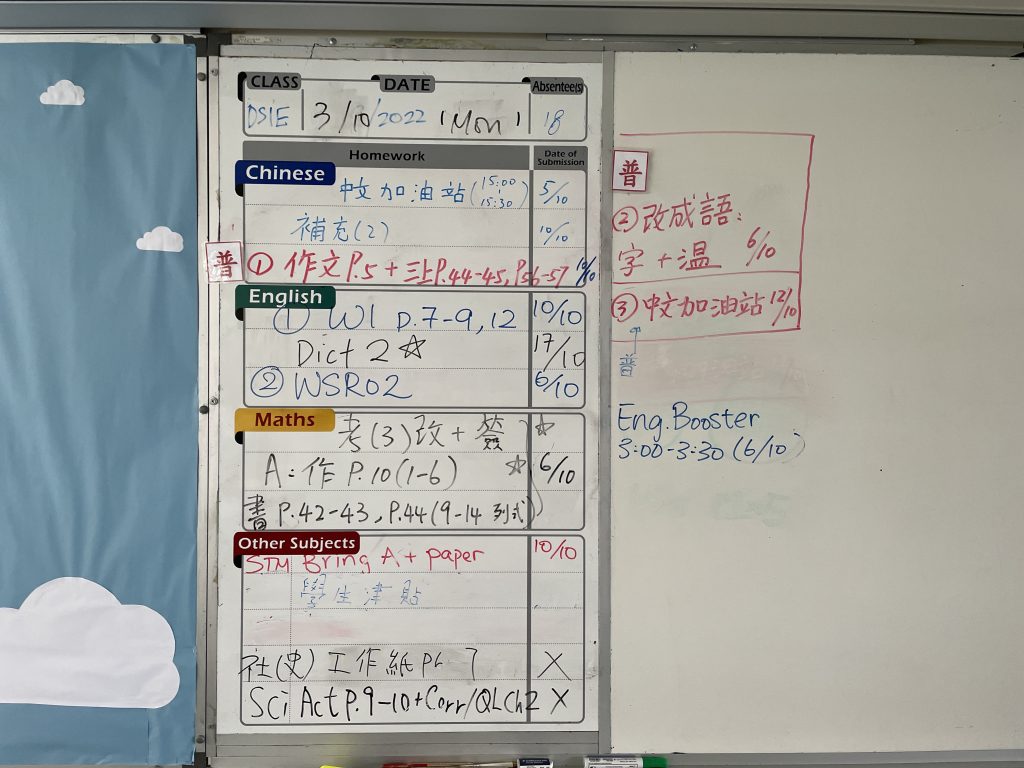 CLASS DATE Absentee(s)
DSIE 3/10/2022 (Mon) 18
Homework Date of Submission
Chinese
中文加油站(15:00-15:30) 5/10
補充(2) 10/10
普 ① 作文 P.5 + 三上 P.44-45, P.56-57 10/10
English
① WI p.7-9, 12 10/10
Dict 2 ☆ 17/10
② WSR02 6/10
Maths
考(3)改+簽 ☆
A:作 P.10(1-6) ☆ 6/10
書 P.42-43, P.44(9-14 列式)
Other Subjects
STM Bring A4 paper 10/10
學生津貼
社(史)工作紙 7 X
Sci Act P.9-10+Corr/QL Ch2 X
普
② 改成語:
字+温 6/10
③ 中文加油站 12/10
普
Eng.Booster
3:00-3:30 (6/10)